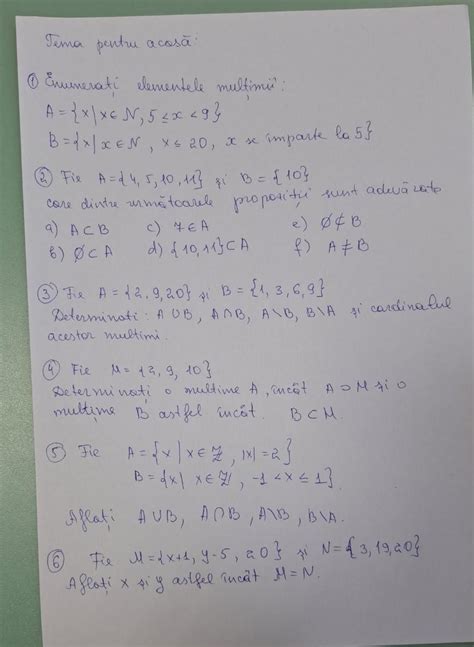 Tema pentru acasă:
① Enumerați elementele mulțimii:
A = {x | x ∈ N, 5 ≤ x < 9}
B = {x | x ∈ N, x ≤ 20, x se împarte la 5}
② Fie A = {4, 5, 10, 11} și B = {10}
care dintre următoarele propoziții sunt adevărate
a) A ⊂ B c) 7 ∈ A e) ∅ ⊄ B
b) ∅ ⊂ A d) {10, 11} ⊂ A f) A ≠ B
③ Fie A = {2, 9, 20} și B = {1, 3, 6, 9}
Determinati: A ∪ B, A ∩ B, A \ B, B \ A și cardinalul
acestor multimi.
④ Fie M = {3, 9, 10}
Determinați o multime A, încât A ⊃ M și o
mulțime B astfel încât. B ⊂ M.
⑤ Fie A = {x | x ∈ Z, |x| = 2}
B = {x | x ∈ Z, -1 < x ≤ 1}
Aflați A ∪ B, A ∩ B, A \ B, B \ A.
⑥ Fie M = {x+1, y-5, 20} și N = {3, 19, 20}
Aflați x și y astfel încât M = N.